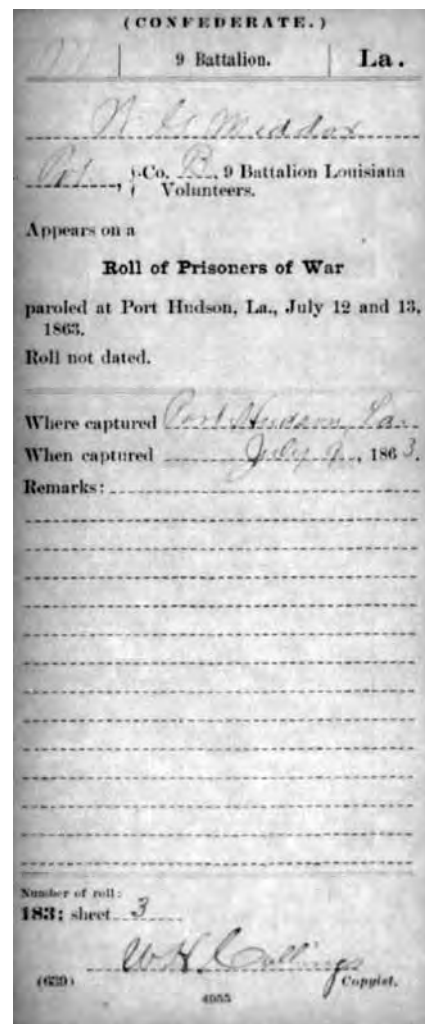 (CONFEDERATE.)
M | 9 Battalion. | La.
Meddox
Pvt, Co. B, 9 Battalion Louisiana
Volunteers.
Appears on a
Roll of Prisoners of War
paroled at Port Hudson, La., July 12 and 13,
1863.
Roll not dated.
Where captured Port Hudson, La.
When captured July 9, 1863.
Remarks:
Number of roll:
183; sheet 3
W H Collings
(639) Copyist.
4055